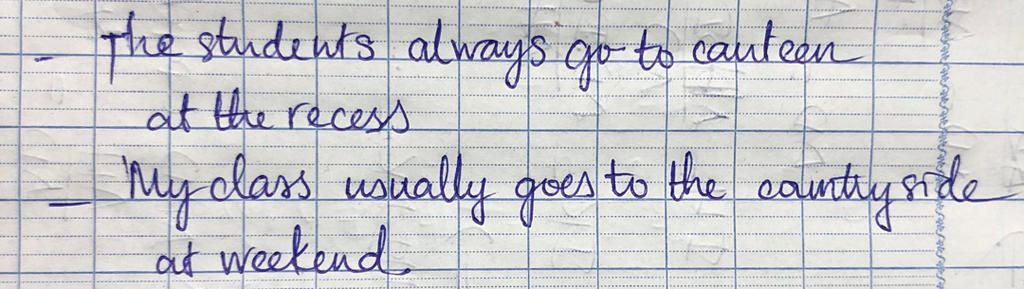 - The students always go to canteen
at the recess
- My class usually goes to the countryside
at weekend.